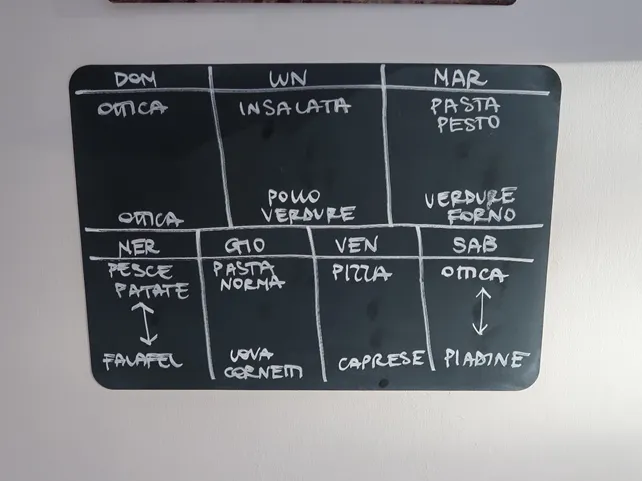 DOM LUN MAR
OTTICA INSALATA PASTA
PESTO
OTTICA POLLO VERDURE
VERDURE FORNO
MER GIO VEN SAB
PESCE PASTA PIZZA OTTICA
PATATE NORMA
FALAFEL UOVA CAPRESE PIADINE
CORNETTI